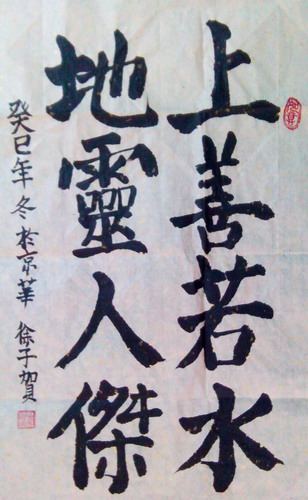 上善若水
地靈人傑
癸巳年冬於京華 徐子賀